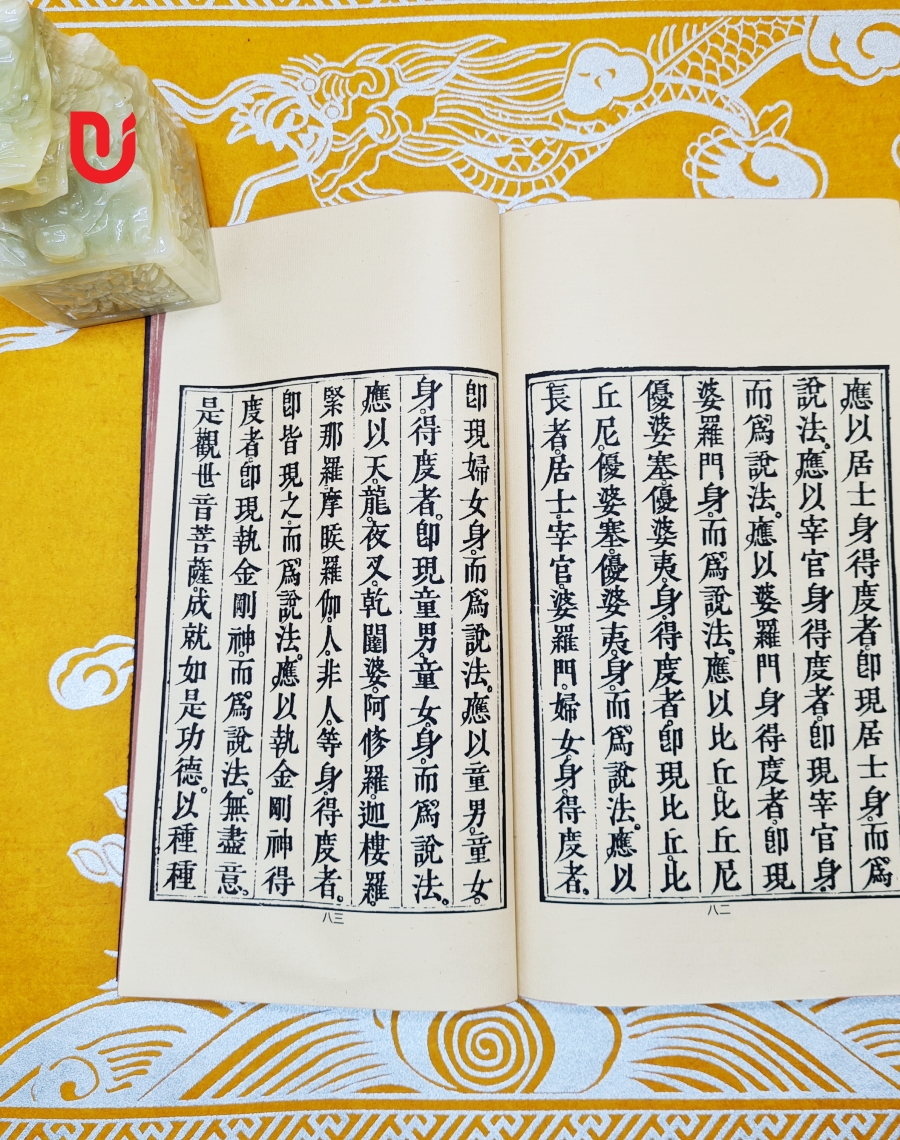 應以居士身得度者。卽現居士身。而爲
說法。應以宰官身得度者。卽現宰官身。
而爲說法。應以婆羅門身得度者。卽現
婆羅門身。而爲說法。應以比丘。比丘尼
優婆塞。優婆夷。身。得度者。卽現比丘。比
丘尼。優婆塞。優婆夷。身。而爲說法。應以
長者。居士。宰官。婆羅門。婦女。身。得度者。
八二
卽現婦女身。而爲說法。應以童男。童女。
身。得度者。卽現童男。童女。身。而爲說法。
應以天。龍。夜叉。乾闥婆。阿修羅。迦樓羅。
緊那羅。摩睺羅伽。人。非人。等身。得度者。
卽皆現之。而爲說法。應以執金剛神得
度者。卽現執金剛神。而爲說法。無盡意。
是觀世音菩薩。成就如是功德。以種種
八三